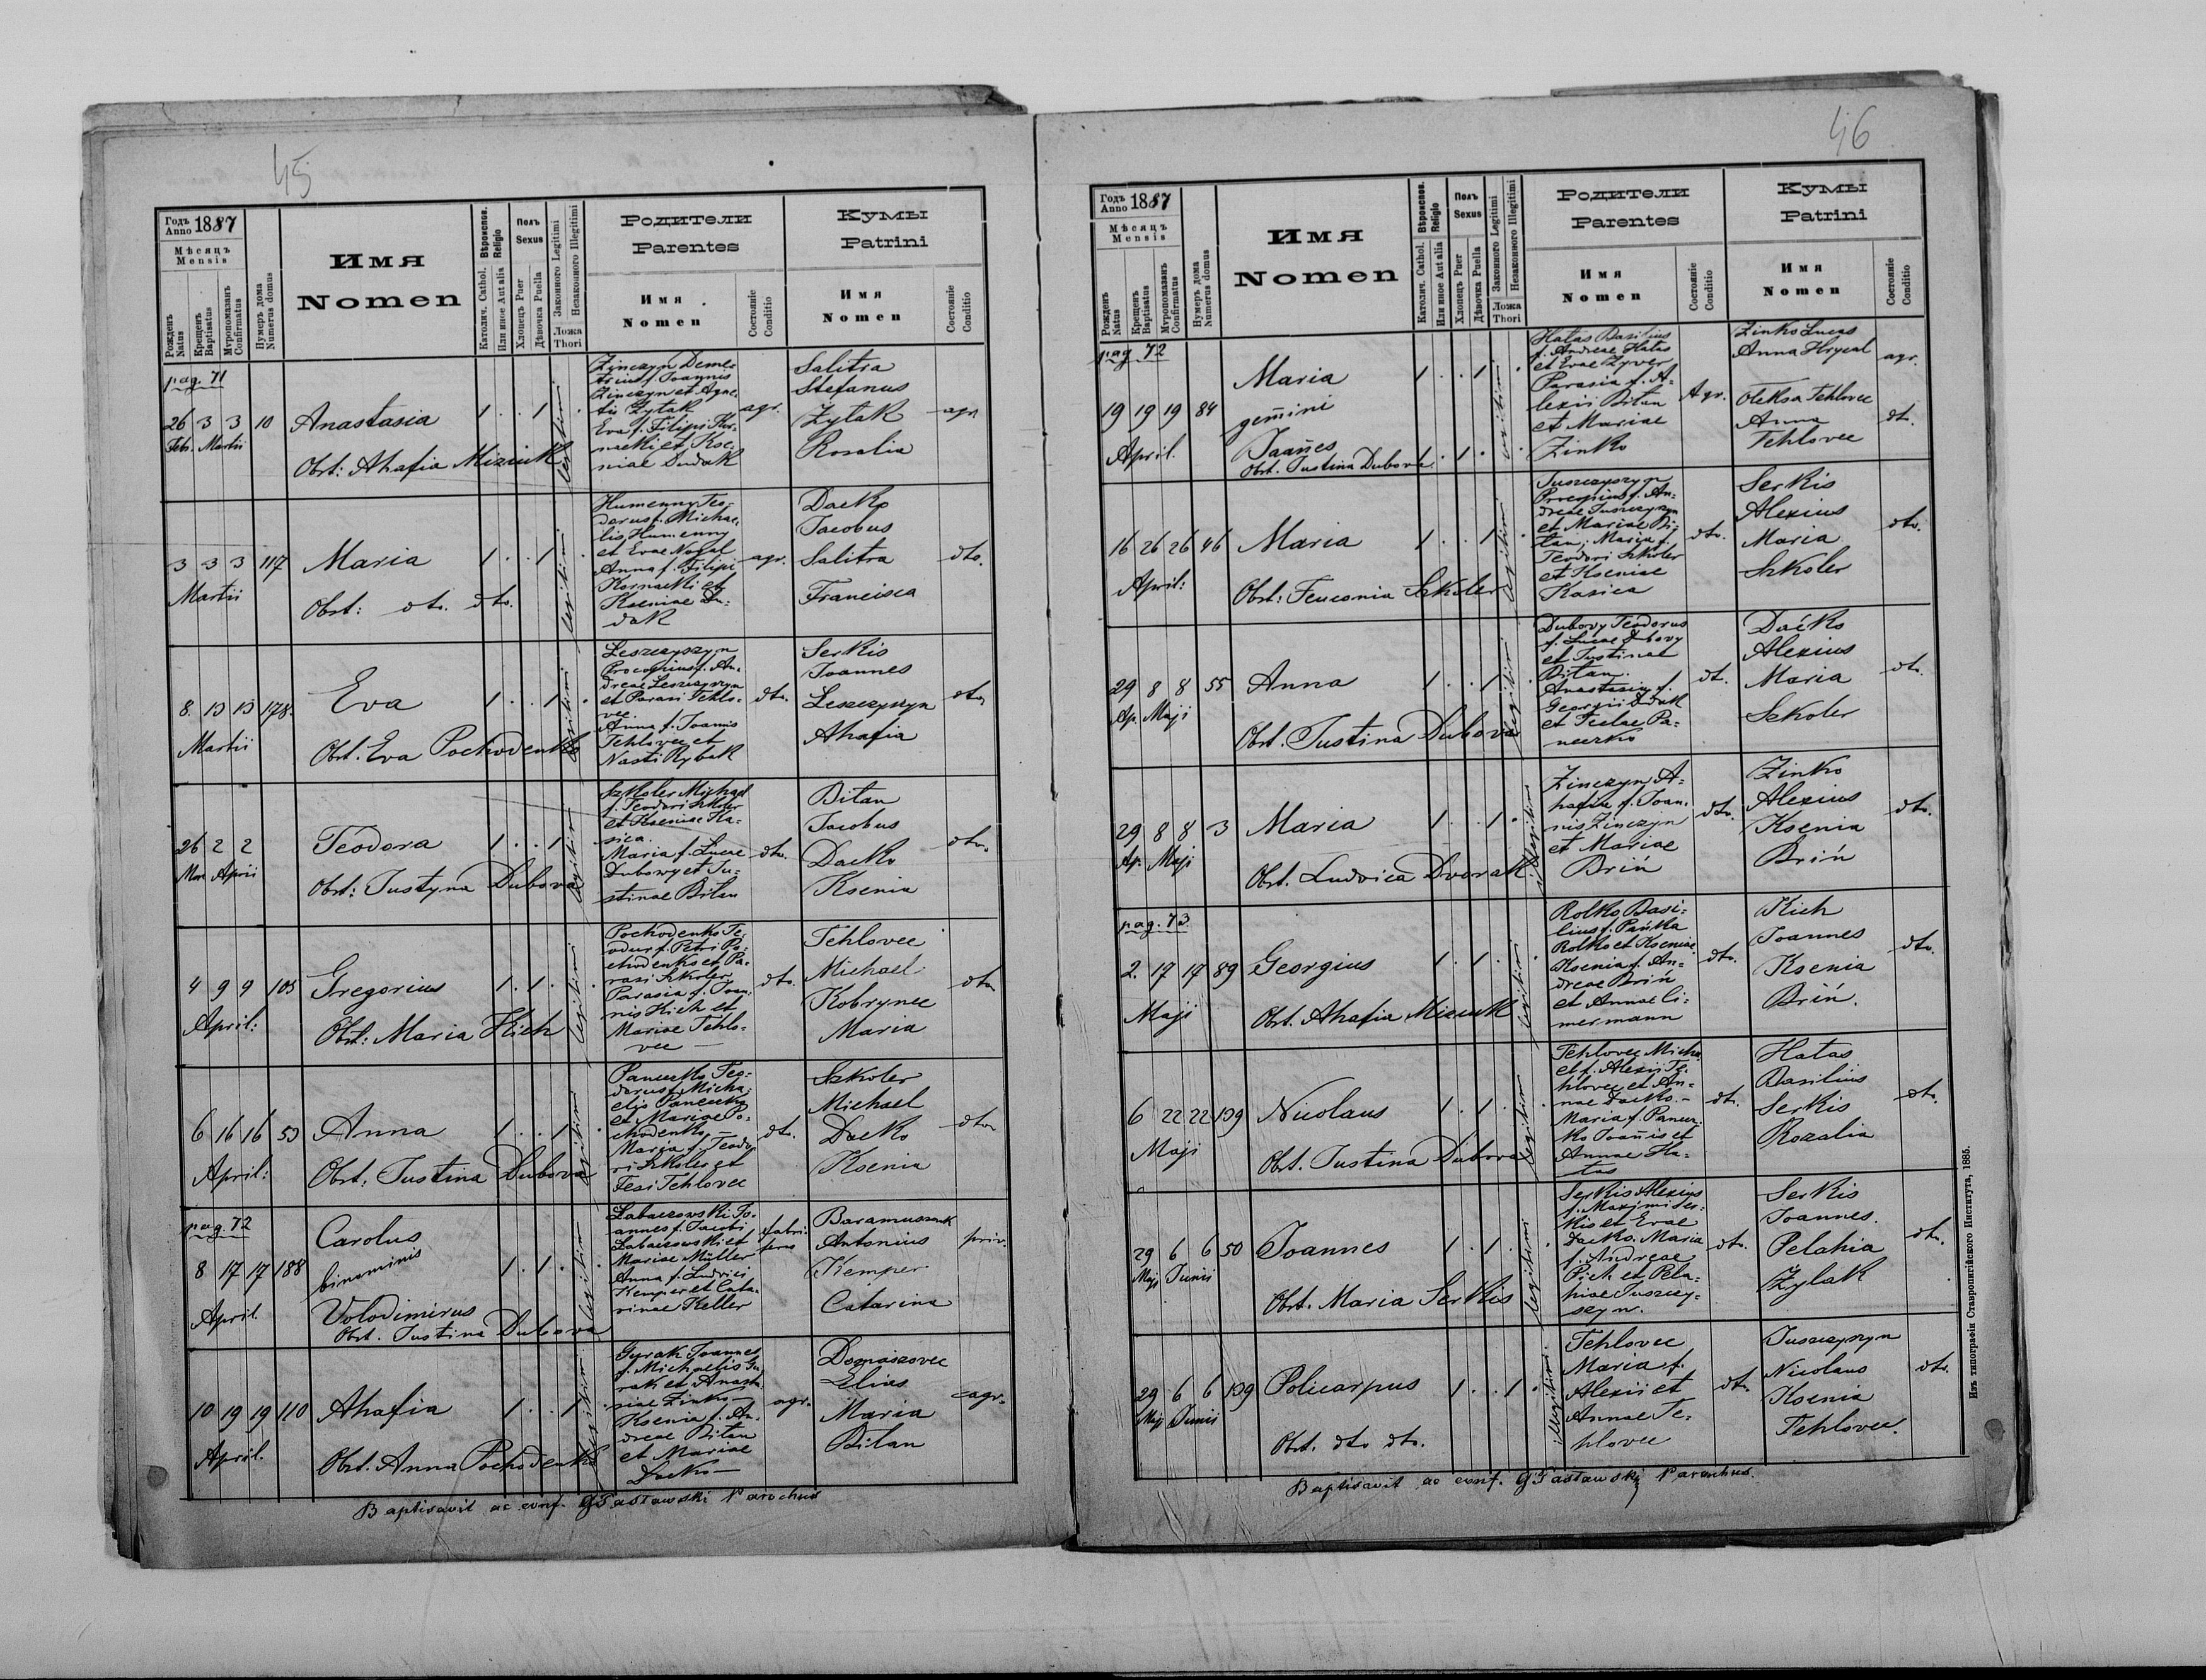 45
Годъ
Anno 1887
Мѣсяць
Mensis
Рожденъ
Natus
Крещенъ
Baptisatus
Муропомазанъ
Confirmatus
Нумеръ дома
Numerus domus
Имя
Nomen
Вѣроиспов.
Religio
Католич. Cathol.
Или иное Aut alia
Полъ
Sexus
Хлопецъ Puer
Дѣвочка Puella
Законного Legitimi
Незаконного Illegitimi
Ложа
Thori
Родители
Parentes
Имя
Nomen
Состояніе
Conditio
Кумы
Patrini
Имя
Nomen
Состояніе
Conditio
pag. 71
26 3 3 10
Feb. Martii
Anastasia
Obst: Ahafia Miziuk
1 . . 1 .
legitimi
Zinczyn Deme-
trius f. Joannis
Zinczyn et Agne-
tis Zytak
Eva f. Filipi Kor-
nacki et Kse-
niae Dudak
agr.
Salitra
Stefanus
Zytak
Rosalia
agr.
3 3 3 117
Martii
Maria
Obst: dto. dto.
1 . . 1 .
legitimi
Humenny Teo-
dorus f. Michae-
lis Humenny
et Evae Nogal
Anna f. Filipi
Kornacki et
Kseniae Du-
dak
agr.
Dacko
Jacobus
Salitra
Francisca
dto.
8. 13 13 178.
Martii
Eva
Obst. Eva Pochodenko
1 . . 1 .
legitimi
Leszczyszyn
Procopius f. An-
dreae Leszczyszyn
et Parasi Tehlo-
vec.
Anna f. Joannis
Tehlovec et
Nasti Rybak
dto.
Serkis
Joannes
Leszczyszyn
Ahafia
dto.
26 2 2
Mar. April
Teodora
Obst: Justyna Dubova
1 . . 1
legitimi
Szkoler Michael
f. Teodori Szkoler
et Kseniae Ka-
sica.
Maria f. Lucae
Dubowy et Ju-
stinae Bitan
dto.
Bitan
Jacobus
Dacko
Ksenia
dto.
4 9 9 105
April:
Gregorius
Obst: Maria Kich
1 . 1 . .
legitimi
Pochodenko Te-
odor f. Petri Po-
chodenko et Pa-
rasi Szkoler
Parasia f. Joan-
nis Kich et
Mariae Tehlo-
vec
dto.
Tehlovec
Michael
Kobrynec
Maria
dto.
6 16 16 53
April:
Anna
Obst: Justina Dubova
1 . . 1 .
legitimi
Paneczko Teo-
dorus f. Micha-
elis Paneczko
et Mariae Po-
chodenko.
Maria f. Teodo-
ri Szkoler et
Fesi Tehlovec
dto.
Szkoler
Michael
Dacko
Ksenia
dto.
pag. 72
8 17 17 188
April.
Carolus
binominis
Volodimirus
Obst. Justina Dubova
1 . 1 . .
legitimi
Labaczowski Jo-
annes f. Jacobi
Labaczowski et
Mariae Müller
Anna f. Ludvici
Kemper et Cata-
rinae Keller
Antonius
Kemper
Catarina
priv.
10 19 19 110
April.
Ahafia
Obst. Anna Pochodenko
1 . . 1 .
legitimi
Gurak Joannes
f. Michaelis Gu-
rak et Anasta-
siae Zinko
Ksenia f. An-
dreae Bitan
et Mariae
Dacko
agr.
Domaszovec
Elias
Maria
Bitan
agr.
Baptisavit ac conf. Parochus
46
Годъ
Anno 1887
Мѣсяць
Mensis
Рожденъ
Natus
Крещенъ
Baptisatus
Муропомазанъ
Confirmatus
Нумеръ дома
Numerus domus
Имя
Nomen
Вѣроиспов.
Religio
Католич. Cathol.
Или иное Aut alia
Полъ
Sexus
Хлопецъ Puer
Дѣвочка Puella
Законного Legitimi
Незаконного Illegitimi
Ложа
Thori
Родители
Parentes
Имя
Nomen
Состояніе
Conditio
Кумы
Patrini
Имя
Nomen
Состояніе
Conditio
pag. 72
19 19 19 84
April.
Maria
gemini
Joannes
Obst. Justina Dubova
1 . . 1 .
. 1 . .
legitimi
Hatas Basilius
f. Andreae Hatas
et Evae Zyver
Parasia f. A-
lexii Bitan
et Mariae
Zinko
Agr.
Zinko Lucas
Anna Hrycal
agr.
Oleksa Tehlovec
Anna
Tehlovec
dto.
16 26 26 46
April:
Maria
Obst: Feuconia Szkoler
1 . . 1 .
legitimi
Juszczyszyn
Procopius f. An-
dreae Juszczyszyn
et Mariae Bi-
tan; Maria f.
Teodori Szkoler
et Kseniae
Kasica
dto.
Serkis
Alexius
Maria
Szkoler
dto.
29 8 8 55
Ap. Maji
Anna
Obst. Justina Dubova
1 . . 1 .
legitimi
Dubovy Teodorus
f. Lucae Dubovy
et Justinae
Bitan.
Anastasia f.
Georgii Dudak
et Teclae Pa-
neczko
dt.
Dacko
Alexius
Maria
Szkoler
dto.
29 8 8 3
Ap. Maji
Maria
Obst. Ludvica Dvorak
1 . . 1 .
illegitimi
Zinczyn A-
hafia f. Joan-
nis Zinczyn
et Mariae
Briń
dto.
Zinko
Alexius
Ksenia
Briń
dto.
pag. 73
2. 17 17 89
Maji
Georgius
Obst. Ahafia Miziuk
1 . 1 . .
legitimi
Rolko Basi-
lius f. Pańka
Rolko et Kseniae
Ksenia f. An-
dreae Briń
et Annae Ci-
mermann
dto.
Kich
Joannes
Ksenia
Briń.
dto.
6 22 22 139
Maji
Nicolaus
Obst. Justina Dubova
1 . 1 . .
legitimi
Tehlovec Micha-
el f. Alexii Te-
hlovec et An-
nae Dacko.
Maria f. Panecz-
ko Joannis et
Annae Ha-
tas
dt.
Hatas
Basilius
Serkis
Rozalia
dt.
29 6 6 50
Maji Junii
Joannes
Obst. Maria Serkis
1 . 1 . .
legitimi
Serkis Alexius
f. Maximi Ser-
kis et Evae
Dacko. Maria
f. Andreae
Pich et Pela-
hiae Juszczy-
szyn.
dto.
Serkis
Joannes.
Pelahia
Zylak
dto.
29 6 6 139
Maji Junii
Policarpus
Obst. dto dto.
1 . . 1 .
illegitimi.
Tehlovec
Maria f.
Alexii et
Annae Te-
hlovec
dt.
Juszczyszyn
Nicolaus
Ksenia
Tehlovec.
dto.
Baptisavit ac conf. Parochus.
Изъ типографіи Ставропигійского Института, 1885.